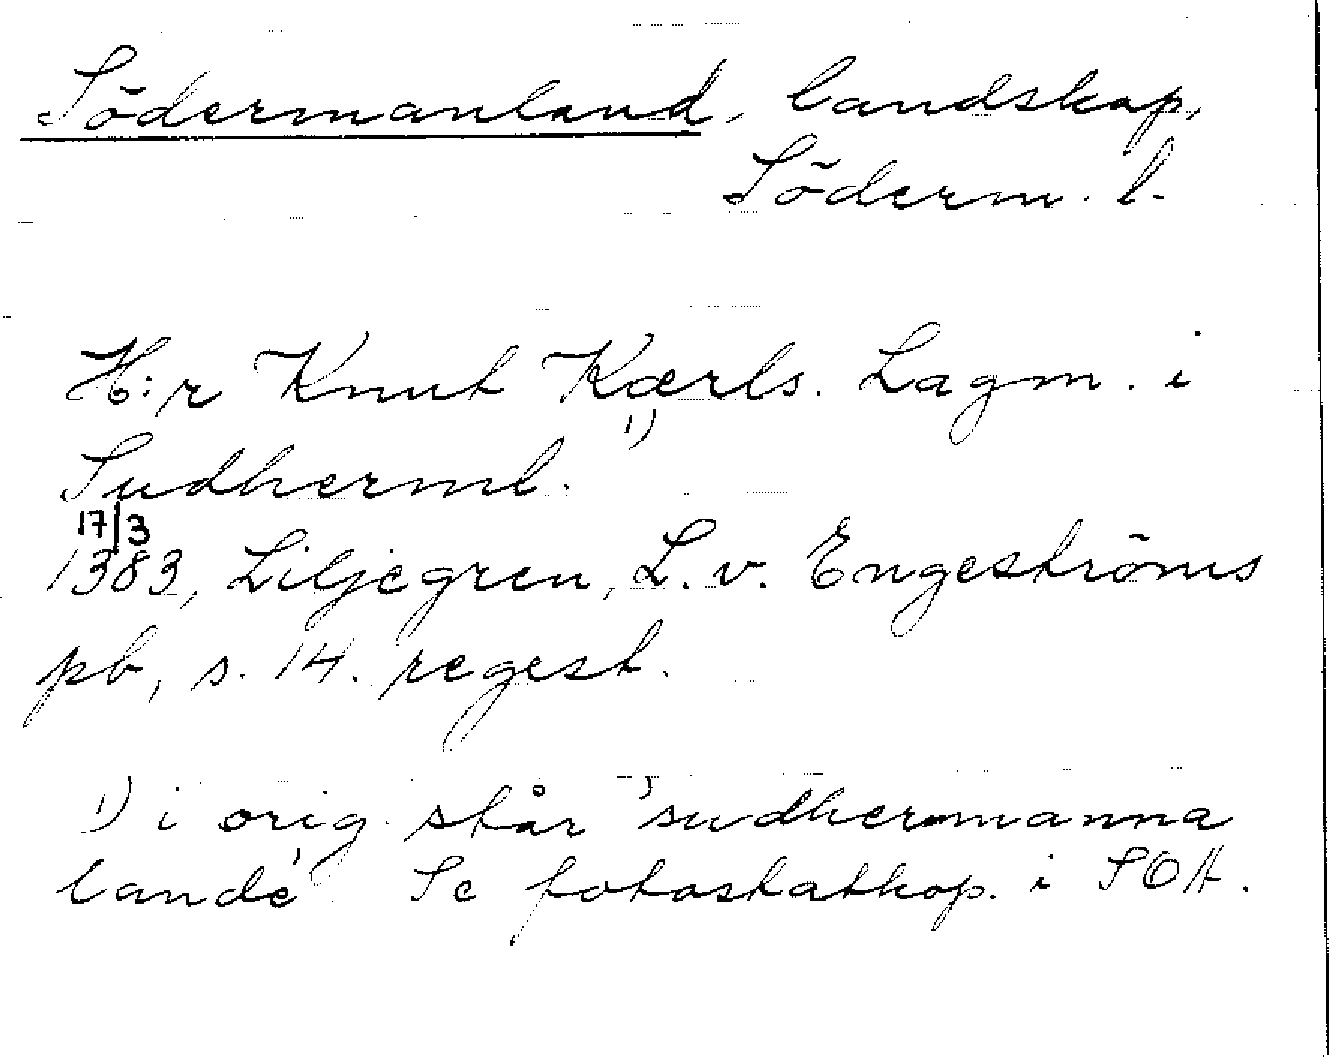 Södermanland, landskap,
Söderm. l.
H:r Knut Kærls. Lagm. i
Sudherml. 1)
17/3
1383, Liljegren, L. v. Engeströms
pb, s. 14. regest.
1) i orig. står 'sudhermanna
lande' Se fotostatkop. i SOA.